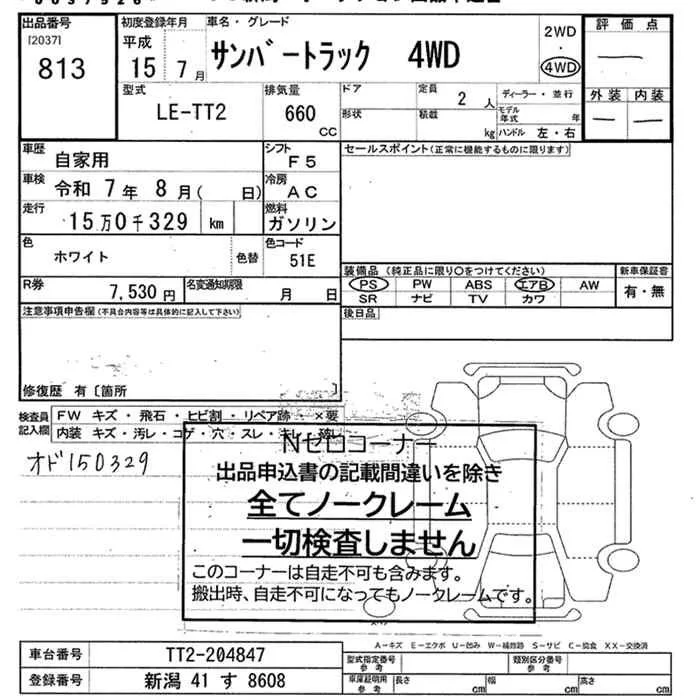 出品番号 初度登録年月 車名・グレード 2WD 評価点
[2037] 平成 ・
813 15年7月 サンバートラック 4WD 4WD
型式 排気量 ドア 定員 ディーラー・並行 外装 内装
LE-TT2 660 CC 2人 モデル年式 年
形状 積載 kg ハンドル 左・右
車歴 自家用 シフト F5 セールスポイント(正常に機能するものに限ります)
車検 令和 7年 8月( 日) 冷房 AC
走行 15万0千329 km 燃料 ガソリン
色 ホワイト 色替 色コード 51E
装備品 (純正品に限り○をつけてください) 新車保証書
R券 7,530円 名変通知期限 月 日 PS PW ABS エアB AW 有・無
SR ナビ TV カワ
注意事項申告欄(不具合内容等は具体的に記入して下さい) 後日品
修復歴 有〔箇所 〕
検査員 FW キズ・飛石・ヒビ割・リペア跡・×要
記入欄 内装 キズ・汚レ・コゲ・穴・スレ・キレ・
オド150329
Nゼロコーナー
出品申込書の記載間違いを除き
全てノークレーム
一切検査しません
このコーナーは自走不可も含みます。
搬出時、自走不可になってもノークレームです。
A-キズ E-エクボ U-凹み W-補修跡 S-サビ C-腐食 XX-交換済
車台番号 TT2-204847 型式指定番号 参考 類別区分番号 参考
登録番号 新潟 41 す 8608 車庫証明用 参考 長さ cm 幅 cm 高さ cm